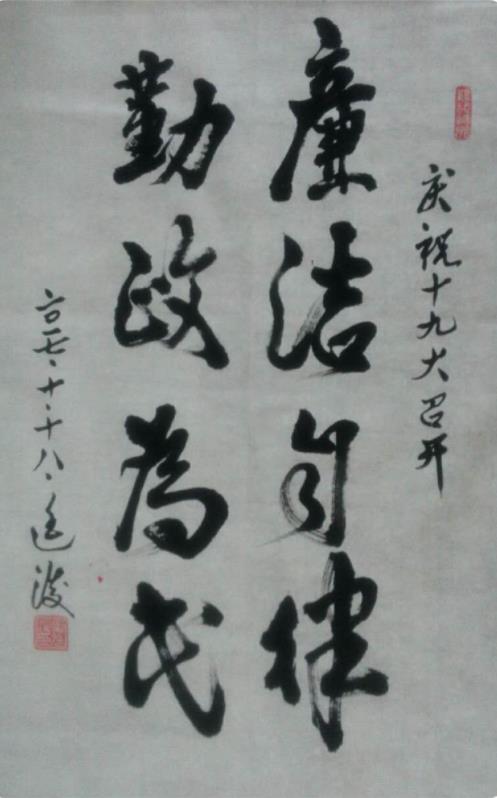 庆祝十九大召开
廉洁自律
勤政为民
二〇一七·十·十八·